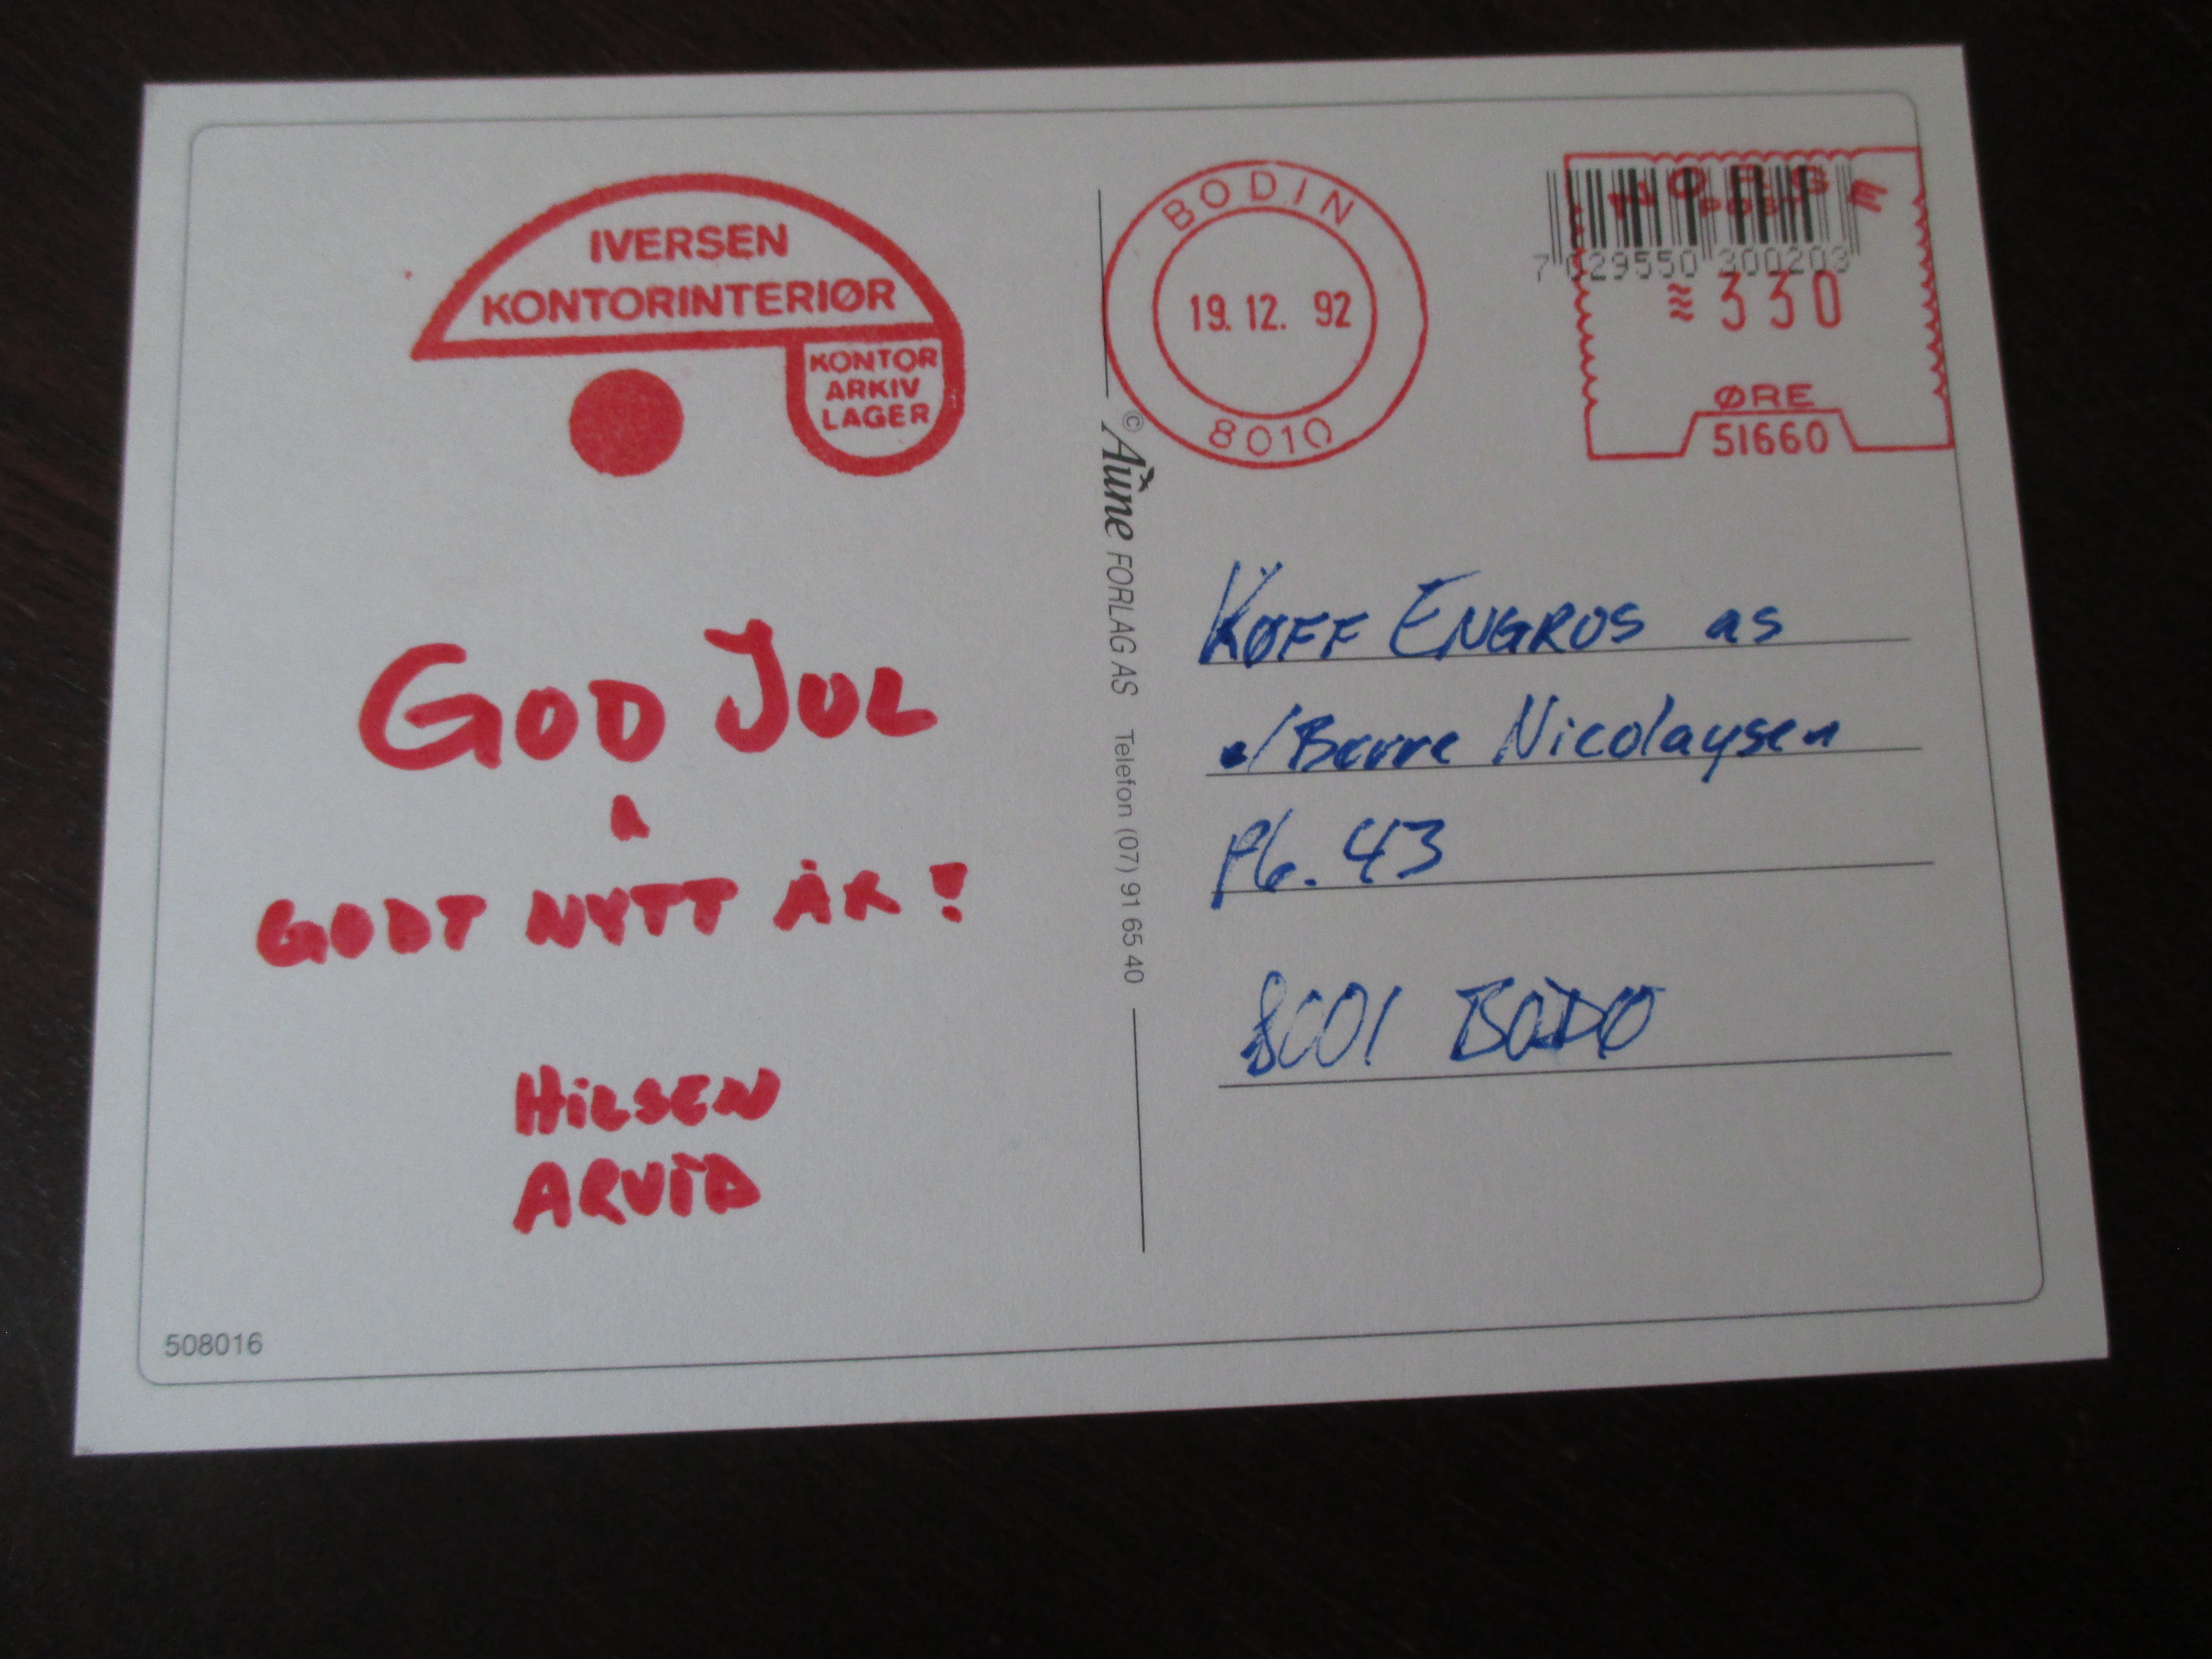 IVERSEN
KONTORINTERIØR
KONTOR
ARKIV
LAGER
GOD JUL
GODT NYTT ÅR!
HILSEN
ARVID
508016
© Aune FORLAG AS Telefon (07) 91 65 40
BODIN
19. 12. 92
8010
NORGE
POST
7 029550 300203
≋ 330
ØRE
51660
KØFF ENGROS as
Nicolaysen
Pb. 43
8001 BODØ